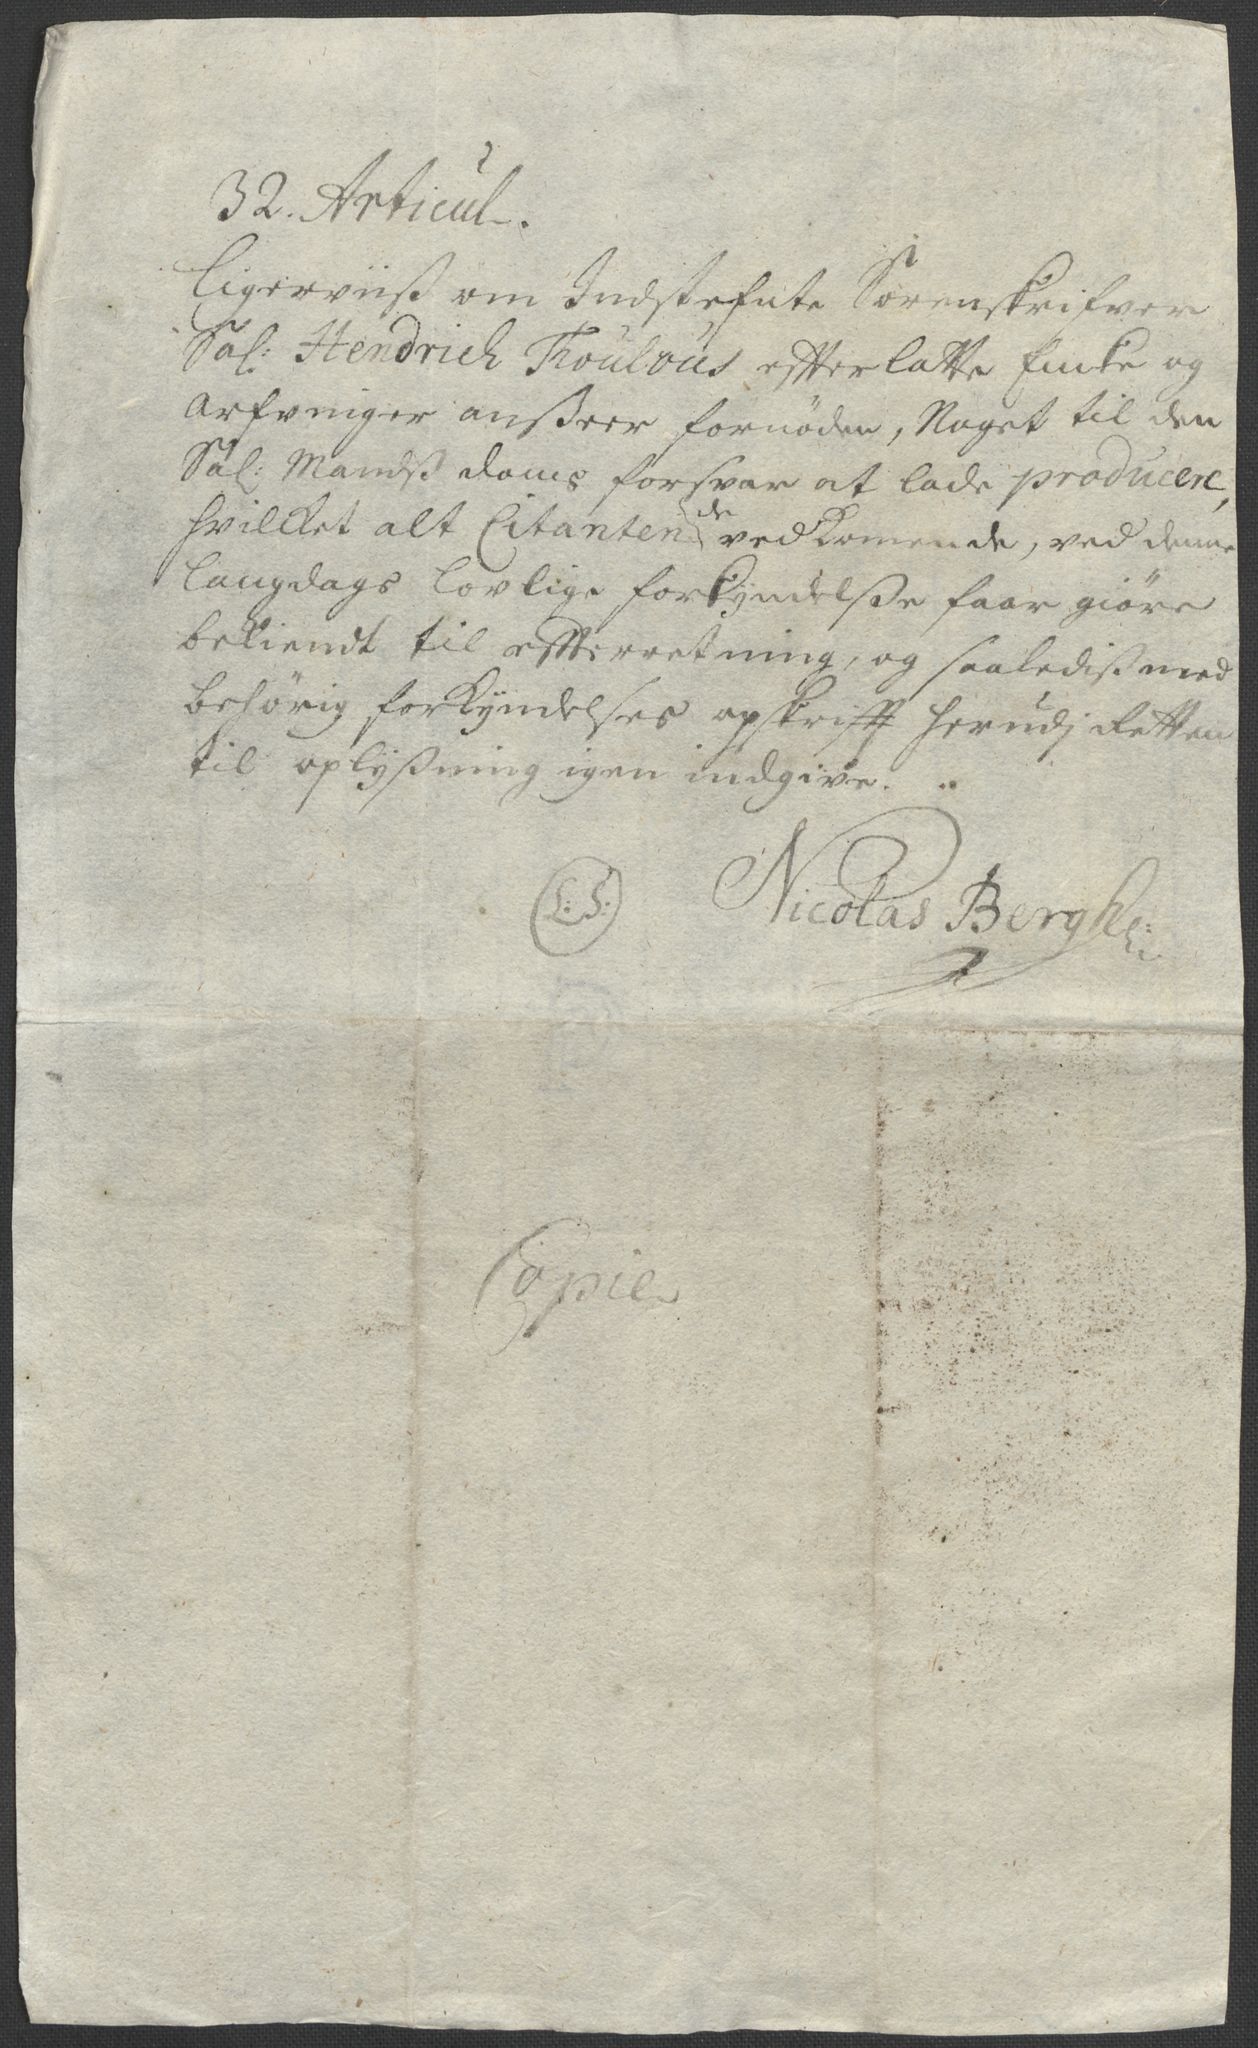 32. Articul.
Ligerviiß om Indstefnte Sorenskrifver
Sal: Hendrich Thoulous efterlatte Encke og
Arfvinger anßeer fornøden, Noget til den
Sal: Mandß doms forsvar at lade producere,
hvilcket alt Citanten de vedkomende, ved denne
laugdags lovlige forkyndelße faar giøre
bekiendt til efterretning, og saalediß med
behørig forkyndelses opskrifft herudj Retten
til oplyßning igen indgive.
L: S: Nicolas Bergh
Copie